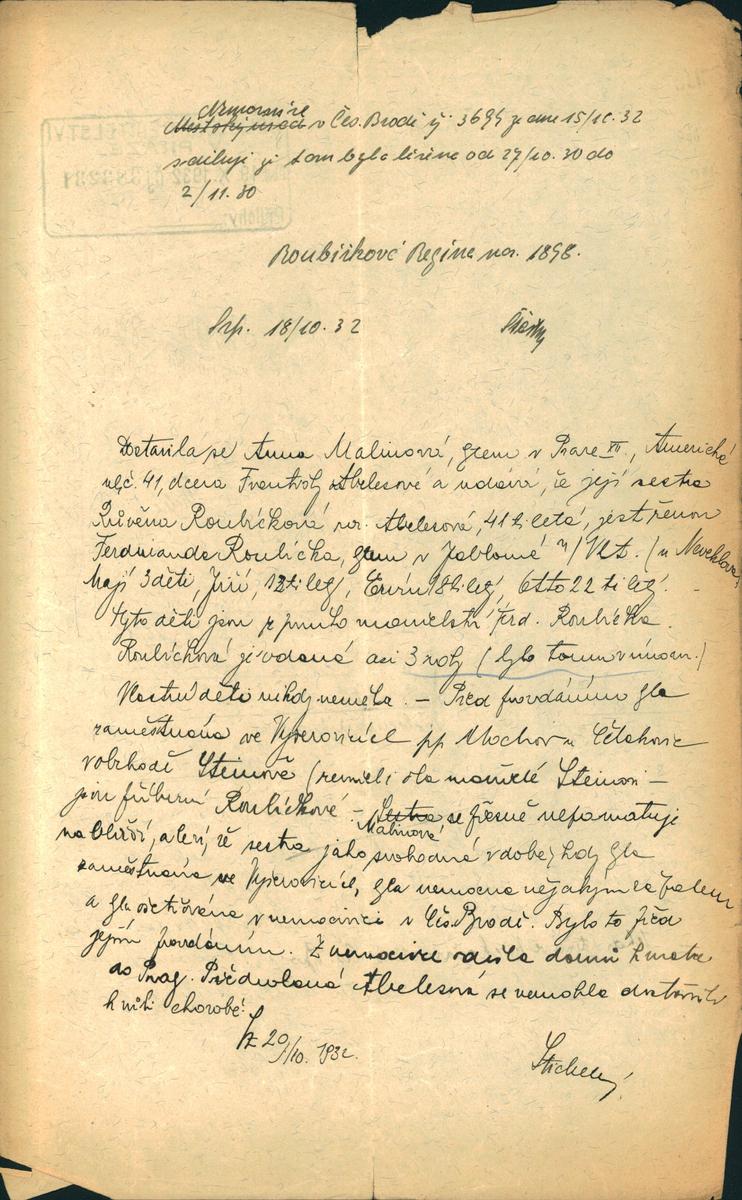 Nemocnice
Městský úřad v Čes. Brodě čj 3694 ze dne 15/10.32
sděluje že tam byla léčena od 27/10.30 do
2/11.30
Roubíčková Regina nar. 1898.
18/10.32
Dostavila se Anna Malinová, bytem v Praze XII., Americká
ul. č. 41, dcera Františky Abelesové a udává, že její sestra
Růžena Roubíčková roz. Abelesová, 41 ti letá, jest ženou
Ferdinanda Roubíčka, bytem v Jabloné n/Vlt. (u Neveklova)
Mají 3 děti, Jiří, 12 ti letý, Ervín 18 ti letý, Otto 22 ti letý.
Tyto děti jsou z prvního manželství Ferd. Roubíčka.
Roubíčková je vdaná asi 3 roky (bylo tomu v únoru.)
Vlastní děti nikdy neměla. – Před provdáním byla
zaměstnána ve Vyšerovicích pp Mochov u Čelakovic
v obchodě Steinově (zemřeli oba manželé Steinovi –
jsou příbuzní Roubíčkové – Sestra se přesně nepamatuje
Malinová
na bližší, a ví, že sestra jako svobodná v době, kdy byla
zaměstnána ve Vyšerovicích, byla nemocna nějakým zápalem
a byla ošetřována v nemocnici v Čes. Brodě. Bylo to před
jejím provdáním. Z nemocnice odešla domů k matce
do Prahy. Předvolaná Abelesová se nemohla dostaviti
kvůli chorobě.
20/10. 1932.